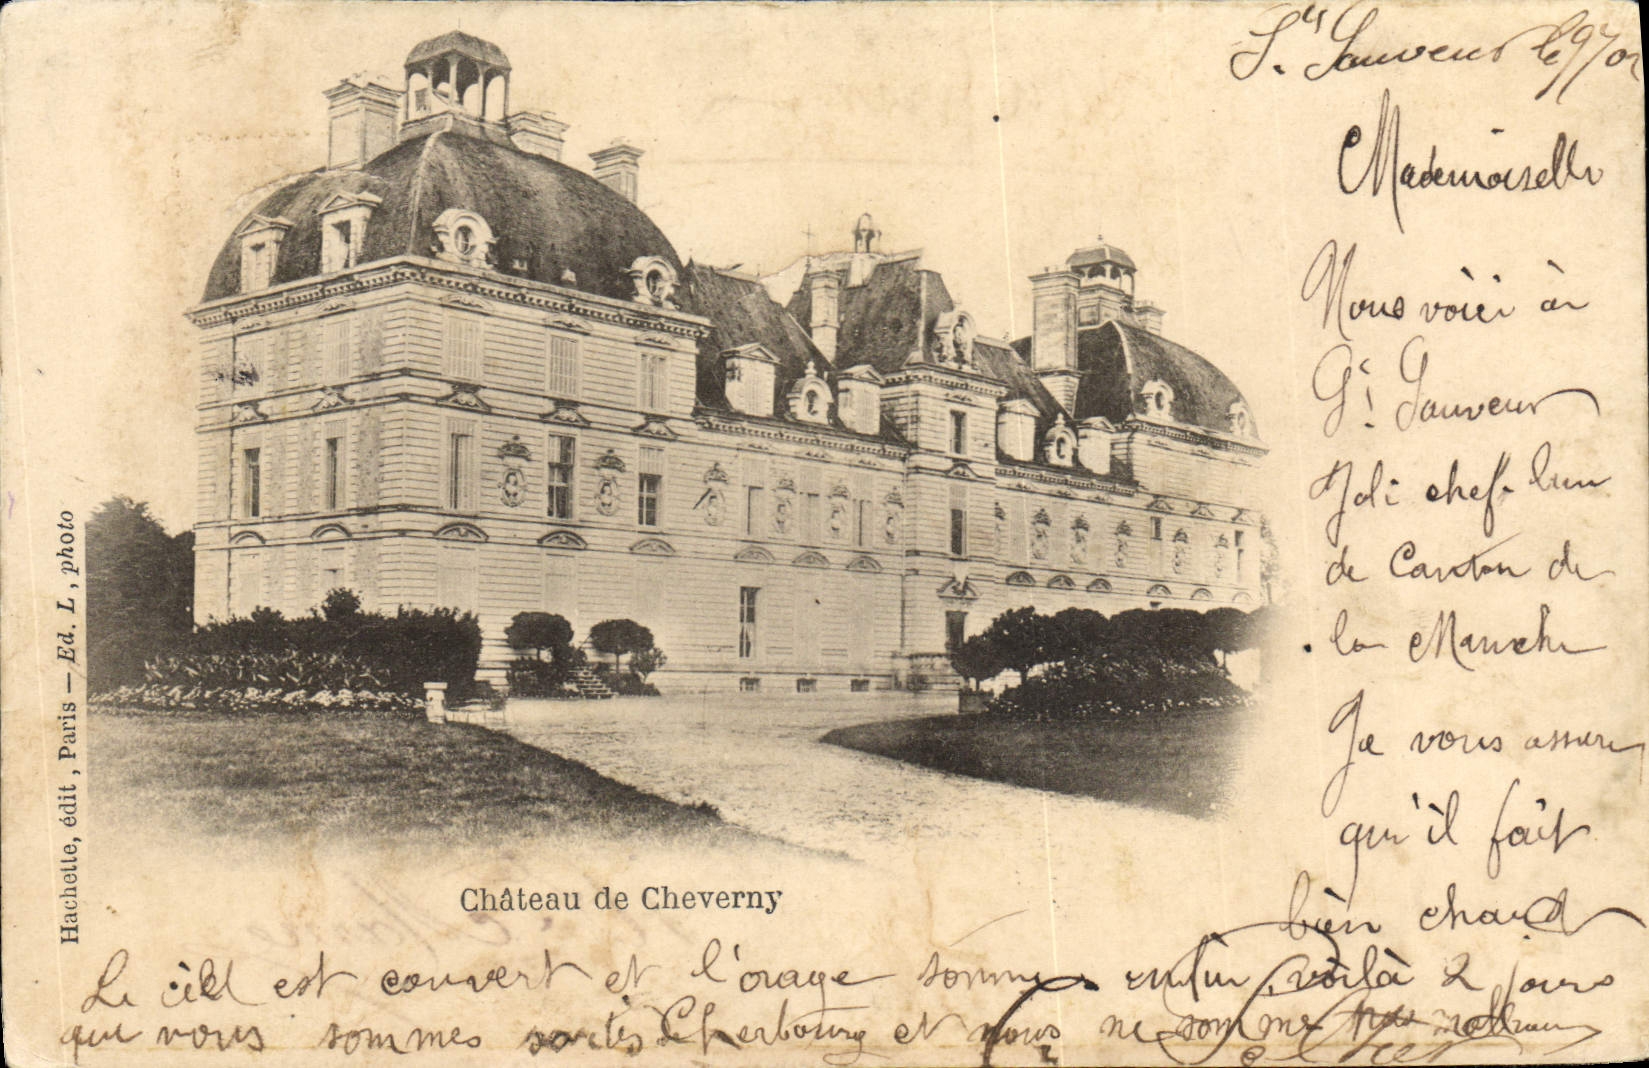 St Sauveur le 9/7 02
Mademoiselle
Nous voici à
St. Sauveur
Joli chef-lieu
de Canton de
la Manche
Je vous assure
qu'il fait
bien chaud
Le ciel est couvert et l'orage sonne enfin voilà 2 jours
que nous sommes sortis Cherbourg et nous ne sommes
Château de Cheverny
Hachette, édit, Paris — Ed. L, photo